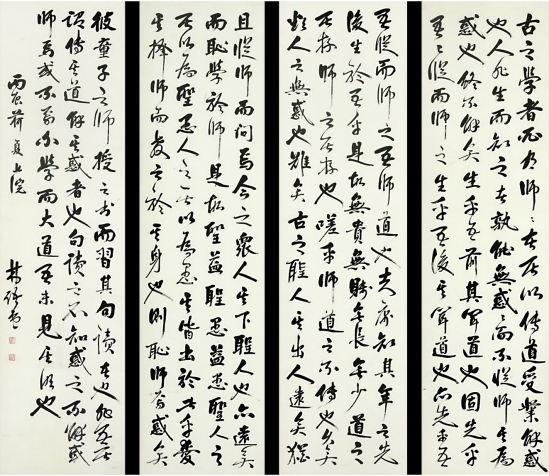 古之學者必有師師者所以傳道受業解惑
也人非生而知之者孰能無惑惑而不從師其為
惑也終不解矣生乎吾前其聞道也固先乎
吾吾從而師之生乎吾後其聞道也亦先乎吾
吾從而師之吾師道也夫庸知其年之先
後生於吾乎是故無貴無賤無長無少道之
所存師之所存也嗟乎師道之不傳也久矣
欲人之無惑也難矣古之聖人其出人遠矣猶
且從師而問焉今之衆人其下聖人也亦遠矣
而恥學於師是故聖益聖愚益愚聖人之
所以為聖愚人之所以為愚其皆出於此乎愛
其擇師而教之於其身也則恥師焉惑矣
彼童子之師授之書而習其句讀者也非吾所
謂傳其道解其惑者也句讀之不知惑之不解或
師焉或不焉小學而大遺吾未見其明也
夏上浣